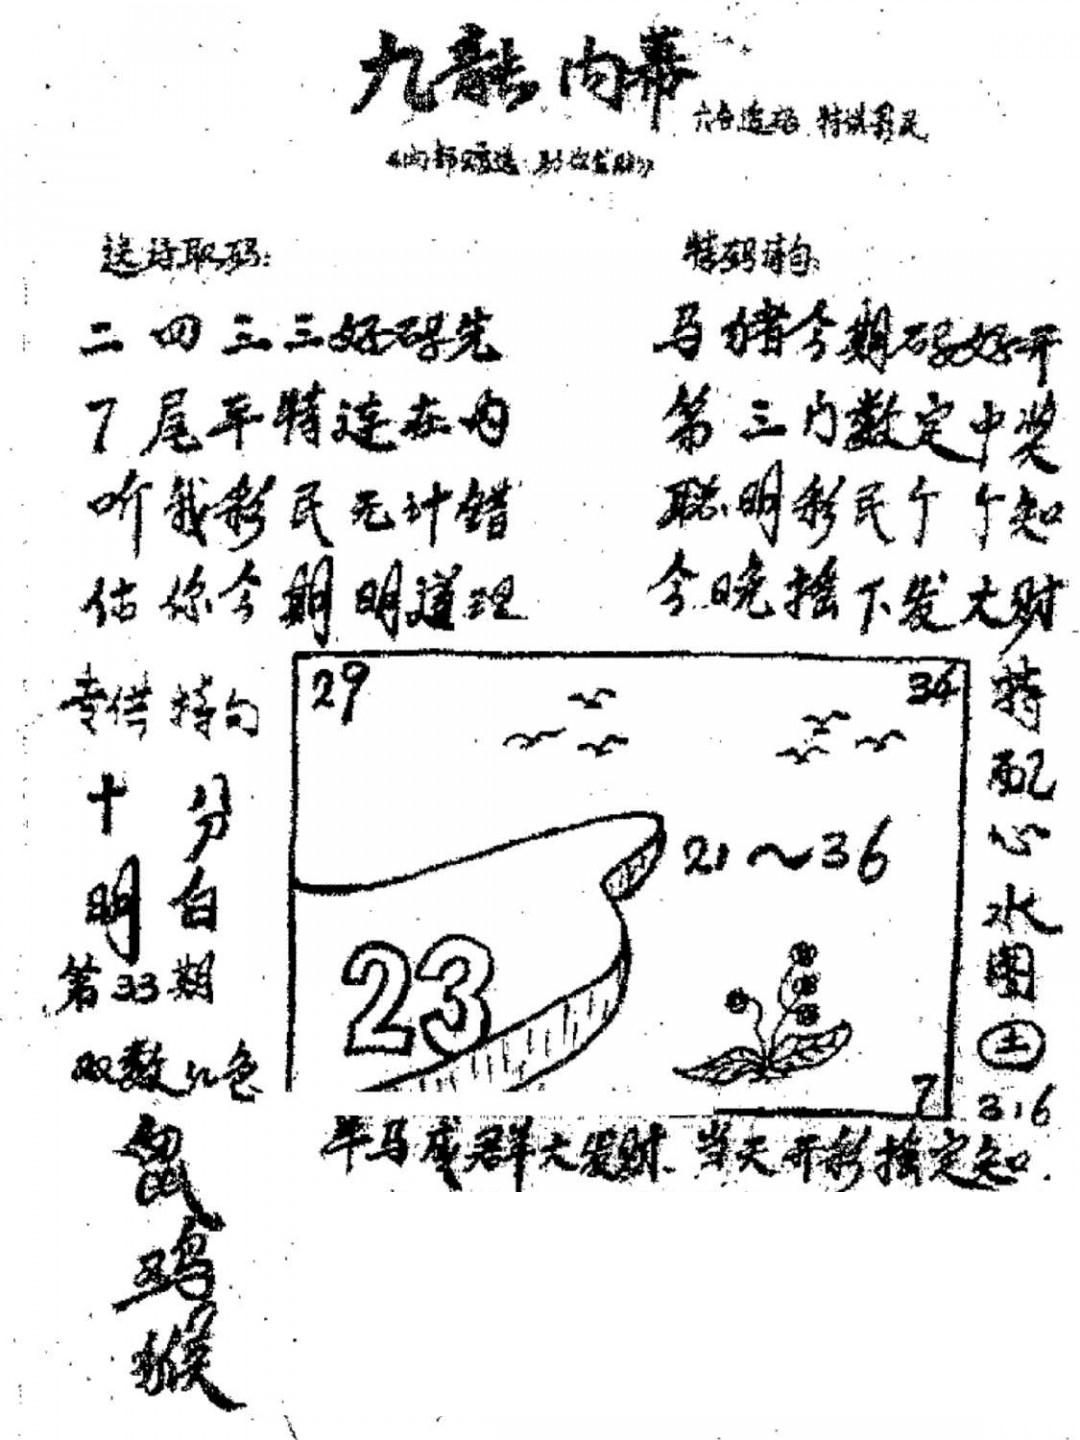 九龍内幕
送诗取码:
特码诗句:
二四三三好码先
7尾平特连在内
听我彩民无计错
估你今期明道理
马猪今期码好开
第三门数定中奖
聪明彩民个个知
今晚摇下发大财
专供特句
十分
明白
第33期
双数红色
鼠
鸡
猴
29
34
21～36
23
7
特配心水图
土
316
羊马成群大发财.当天开彩摇定知.